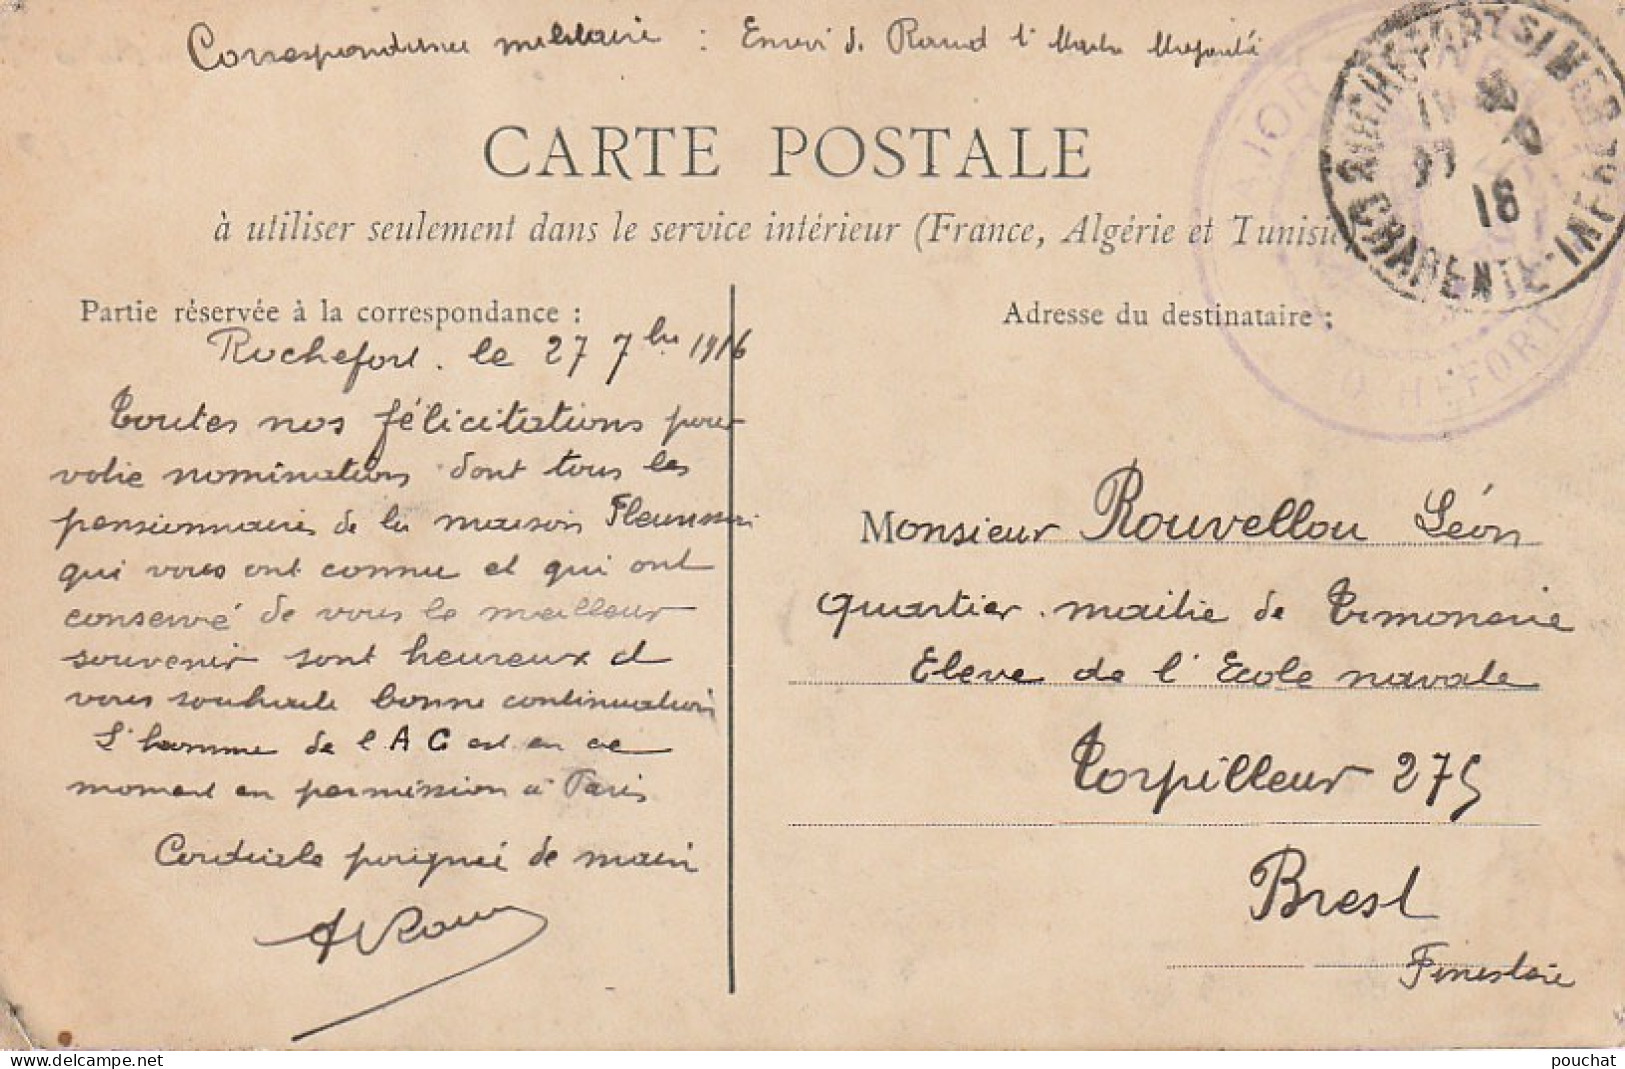 Correspondance militaire : Envoi de Raud
CARTE POSTALE
à utiliser seulement dans le service intérieur (France, Algérie et Tunisie
Partie réservée à la correspondance :
Rochefort. le 27 7bre 1916
Toutes nos félicitations pour
votre nomination dont tous les
pensionnaires de la maison
qui vous ont connu et qui ont
conservé de vous le meilleur
souvenir sont heureux et
vous souhaite bonne continuation
L'homme de l'AC est en ce
moment en permission à Paris
Cordiale poignée de main
Adresse du destinataire :
Monsieur Rouvellou Léon
quartier. maitre de Timonerie
Eleve de l'Ecole navale
Torpilleur 275
Brest
Finistère
ROCHEFORT S/MER
27 16
CHARENTE-INFRE
MAJOR
ROCHEFORT
pouchat
www.delcampe.net